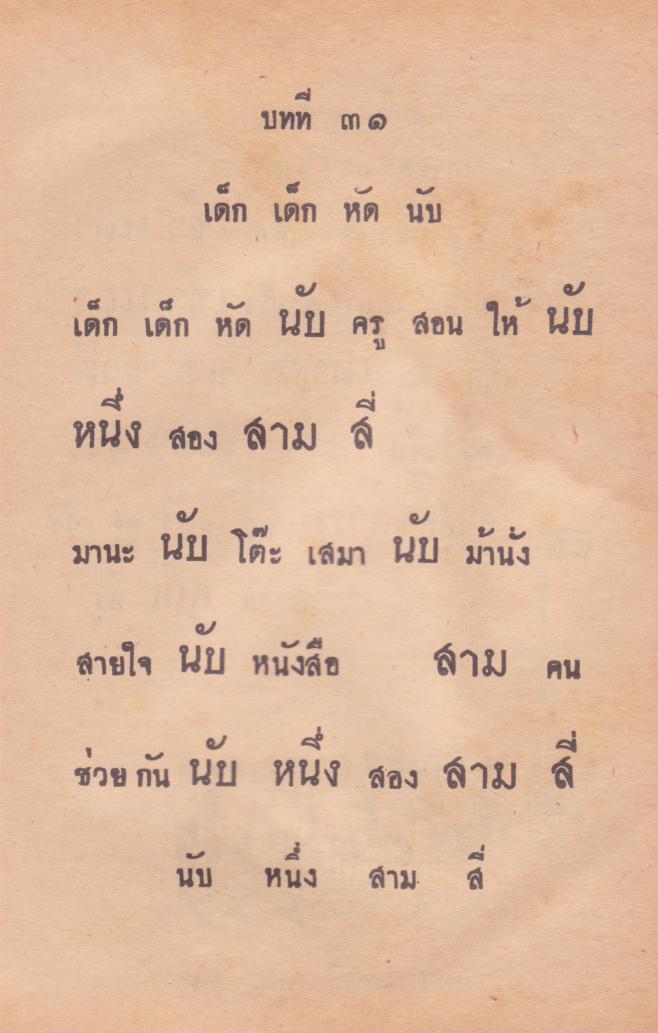 บทที่ ๓๑
เด็ก เด็ก หัด นับ
เด็ก เด็ก หัด นับ ครู สอน ให้ นับ
หนึ่ง สอง สาม สี่
มานะ นับ โต๊ะ เสมา นับ ม้านั่ง
สายใจ นับ หนังสือ สาม คน
ช่วย กัน นับ หนึ่ง สอง สาม สี่
นับ หนึ่ง สาม สี่